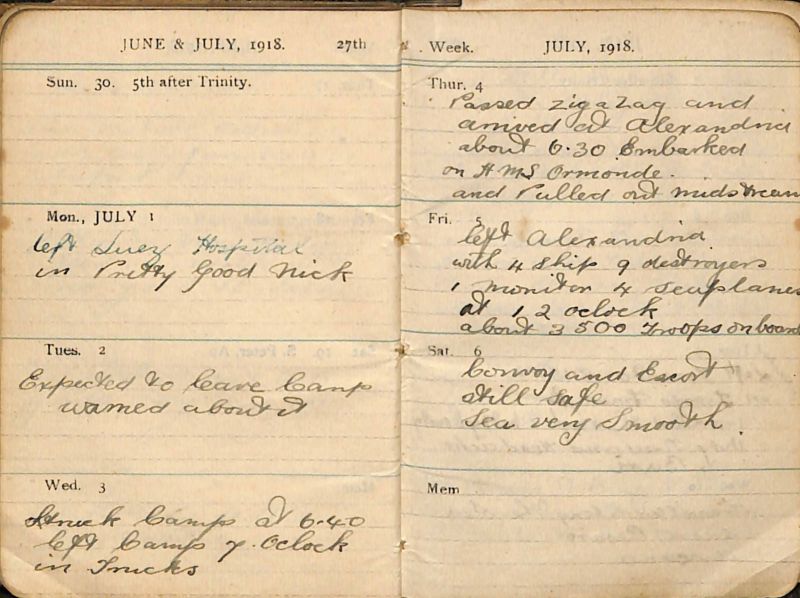 JUNE & JULY, 1918. 27th
Sun. 30. 5th after Trinity.
Mon., JULY 1
left Suez Hospital
in Pretty Good Nick
Tues. 2
Expected to leave Camp
warned about it
Wed. 3
Struck Camp at 6.40
left Camp 7. Oclock
in Trucks
Week. JULY, 1918.
Thur. 4
Passed zig a Zag and
arrived at Alexandria
about 6.30 Embarked
on HMS Ormonde.
and Pulled out midstream
Fri. 5
left Alexandria
with 4 Ship 9 destroyers
1 monitor 4 Seaplanes
at 12 oclock
about 3500 Troops on board
Sat. 6
Convoy and Escort
still safe
Sea very Smooth.
Mem